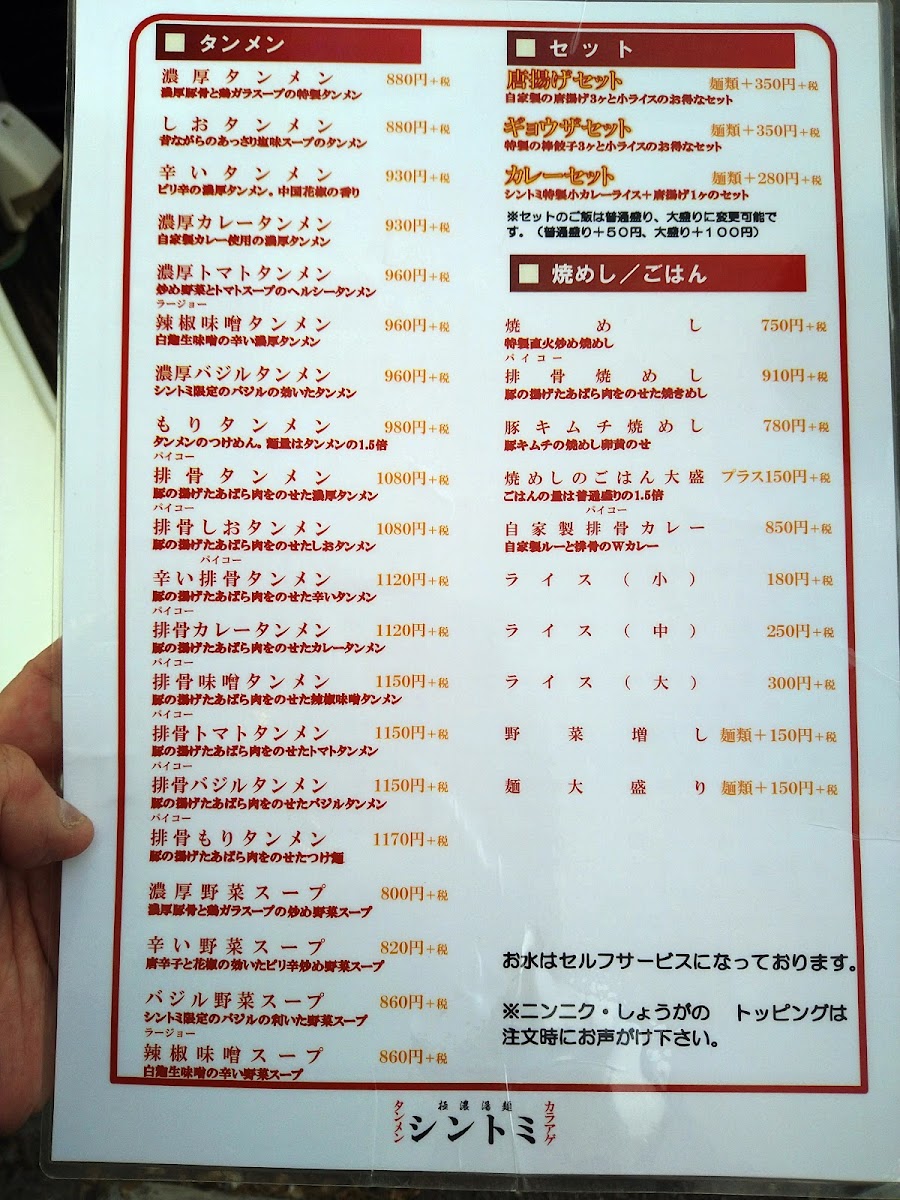 タンメン
濃厚タンメン 880円+税
濃厚豚骨と鶏ガラスープの特製タンメン
しおタンメン 880円+税
昔ながらのあっさり塩味スープのタンメン
辛いタンメン 930円+税
ピリ辛の濃厚タンメン。中国花椒の香り
濃厚カレータンメン 930円+税
自家製カレー使用の濃厚タンメン
濃厚トマトタンメン 960円+税
炒め野菜とトマトスープのヘルシータンメン
ラージョー
辣椒味噌タンメン 960円+税
白麹生味噌の辛い濃厚タンメン
濃厚バジルタンメン 960円+税
シントミ限定のバジルの効いたタンメン
もりタンメン 980円+税
タンメンのつけめん。麺量はタンメンの1.5倍
パイコー
排骨タンメン 1080円+税
豚の揚げたあばら肉をのせた濃厚タンメン
パイコー
排骨しおタンメン 1080円+税
豚の揚げたあばら肉をのせたしおタンメン
パイコー
辛い排骨タンメン 1120円+税
豚の揚げたあばら肉をのせた辛いタンメン
パイコー
排骨カレータンメン 1120円+税
豚の揚げたあばら肉をのせたカレータンメン
パイコー
排骨味噌タンメン 1150円+税
豚の揚げたあばら肉をのせた辣椒味噌タンメン
パイコー
排骨トマトタンメン 1150円+税
豚の揚げたあばら肉をのせたトマトタンメン
パイコー
排骨バジルタンメン 1150円+税
豚の揚げたあばら肉をのせたバジルタンメン
パイコー
排骨もりタンメン 1170円+税
豚の揚げたあばら肉をのせたつけ麺
濃厚野菜スープ 800円+税
濃厚豚骨と鶏ガラスープの炒め野菜スープ
辛い野菜スープ 820円+税
唐辛子と花椒の効いたピリ辛炒め野菜スープ
バジル野菜スープ 860円+税
シントミ限定のバジルの利いた野菜スープ
ラージョー
辣椒味噌スープ 860円+税
白麹生味噌の辛い野菜スープ
セット
唐揚げセット 麺類+350円+税
自家製の唐揚げ3ヶと小ライスのお得なセット
ギョウザセット 麺類+350円+税
特製の棒餃子3ヶと小ライスのお得なセット
カレーセット 麺類+280円+税
シントミ特製小カレーライス+唐揚げ1ヶのセット
※セットのご飯は普通盛り、大盛りに変更可能で
す。(普通盛り+50円、大盛り+100円)
焼めし/ごはん
焼めし 750円+税
特製直火炒め焼めし
パイコー
排骨焼めし 910円+税
豚の揚げたあばら肉をのせた焼きめし
豚キムチ焼めし 780円+税
豚キムチの焼めし卵黄のせ
焼めしのごはん大盛 プラス150円+税
ごはんの量は普通盛りの1.5倍
パイコー
自家製排骨カレー 850円+税
自家製ルーと排骨のWカレー
ライス(小) 180円+税
ライス(中) 250円+税
ライス(大) 300円+税
野菜増し 麺類+150円+税
麺大盛り 麺類+150円+税
お水はセルフサービスになっております。
※ニンニク・しょうがの トッピングは
注文時にお声がけ下さい。
極濃湯麺
タンメン シントミ カラアゲ